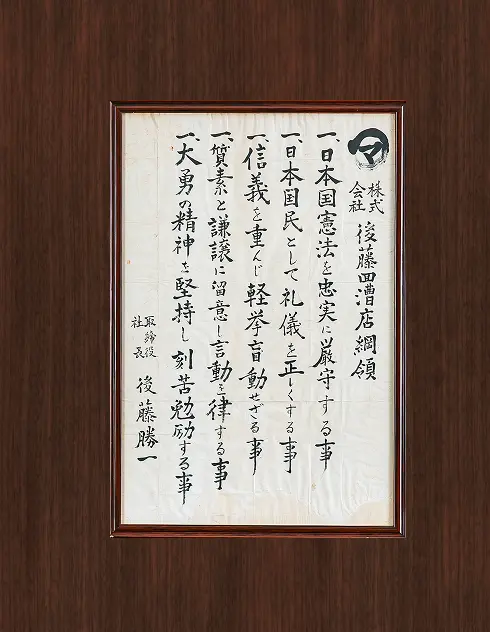 マ
株式会社 後藤回漕店綱領
一、日本国憲法を忠実に厳守する事
一、日本国民として礼儀を正しくする事
一、信義を重んじ軽挙盲動せざる事
一、質素と謙譲に留意し言動を律する事
一、大勇の精神を堅持し刻苦勉励する事
取締役社長 後藤勝一